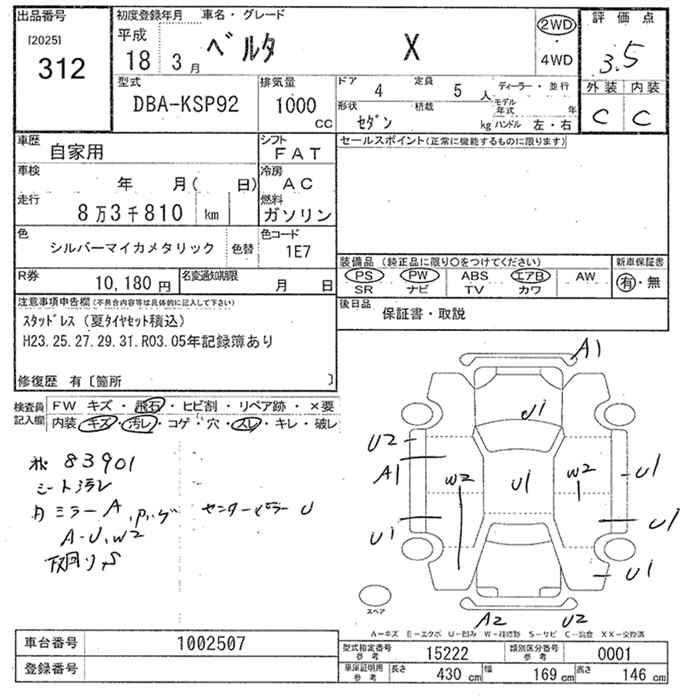 出品番号
[2025]
312
初度登録年月 車名・グレード
平成
18 3月 ベルタ X
2WD
4WD
評価点
3.5
外装 内装
C C
型式
DBA-KSP92
排気量
1000
CC
ドア 4 定員 5 人
ディーラー・並行
形状 セダン 積載 kg
モデル年式 年
ハンドル 左・右
車歴 自家用
シフト FAT
セールスポイント(正常に機能するものに限ります)
車検 年 月( 日)
冷房 AC
走行 8万3千810 km
燃料 ガソリン
色 シルバーマイカメタリック 色替
色コード 1E7
装備品 (純正品に限り○をつけてください)
PS PW ABS エアB AW
SR ナビ TV カワ
新車保証書
有・無
R券 10,180円 名変通知期限 月 日
後日品 保証書・取説
注意事項申告欄(不具合内容等は具体的に記入して下さい)
スタッドレス (夏タイヤセット積込)
H23.25.27.29.31.R03.05年記録簿あり
修復歴 有〔箇所 〕
検査員記入欄
FW キズ・飛石・ヒビ割・リペア跡・×要
内装 キズ・汚レ・コゲ・穴・スレ・キレ・破レ
83901
シート汚レ
ミラーA
センターピラー U
A-U, W2
下回りS
A1
U1
U2
A1
W2
U1
W2
U1
U1
U1
U1
A2 U2
スペア
A-キズ E-エクボ U-凹み W-補修跡 S-サビ C-腐食 XX-交換済
車台番号 1002507
登録番号
型式指定番号 参考 15222 類別区分番号 参考 0001
車庫証明用 参考 長さ 430 cm 幅 169 cm 高さ 146 cm